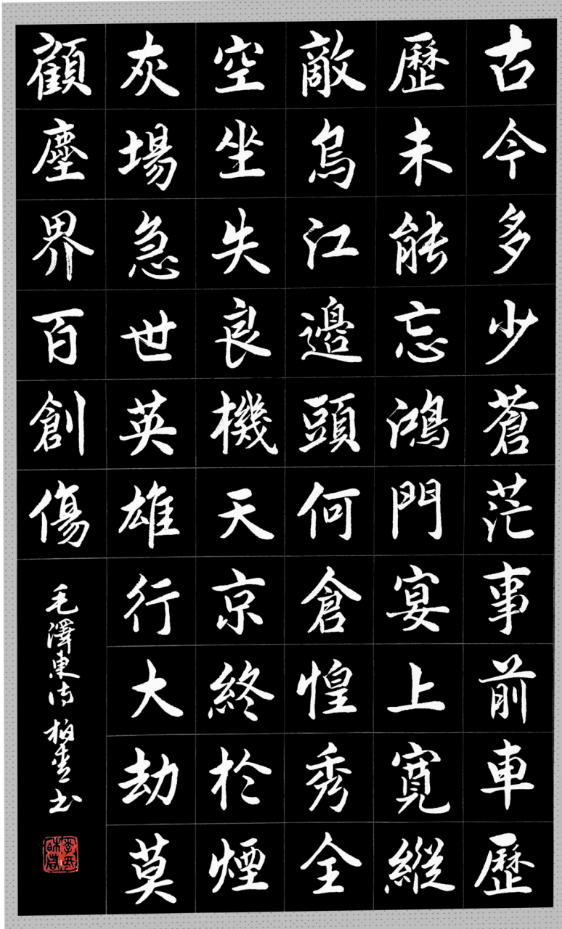 古今多少蒼茫事前車歷
歷未能忘鴻門宴上寬縱
敵烏江邊頭何倉惶秀全
空坐失良機天京終於煙
灰場急世英雄行大劫莫
顧塵界百創傷
毛澤東詩柏青书